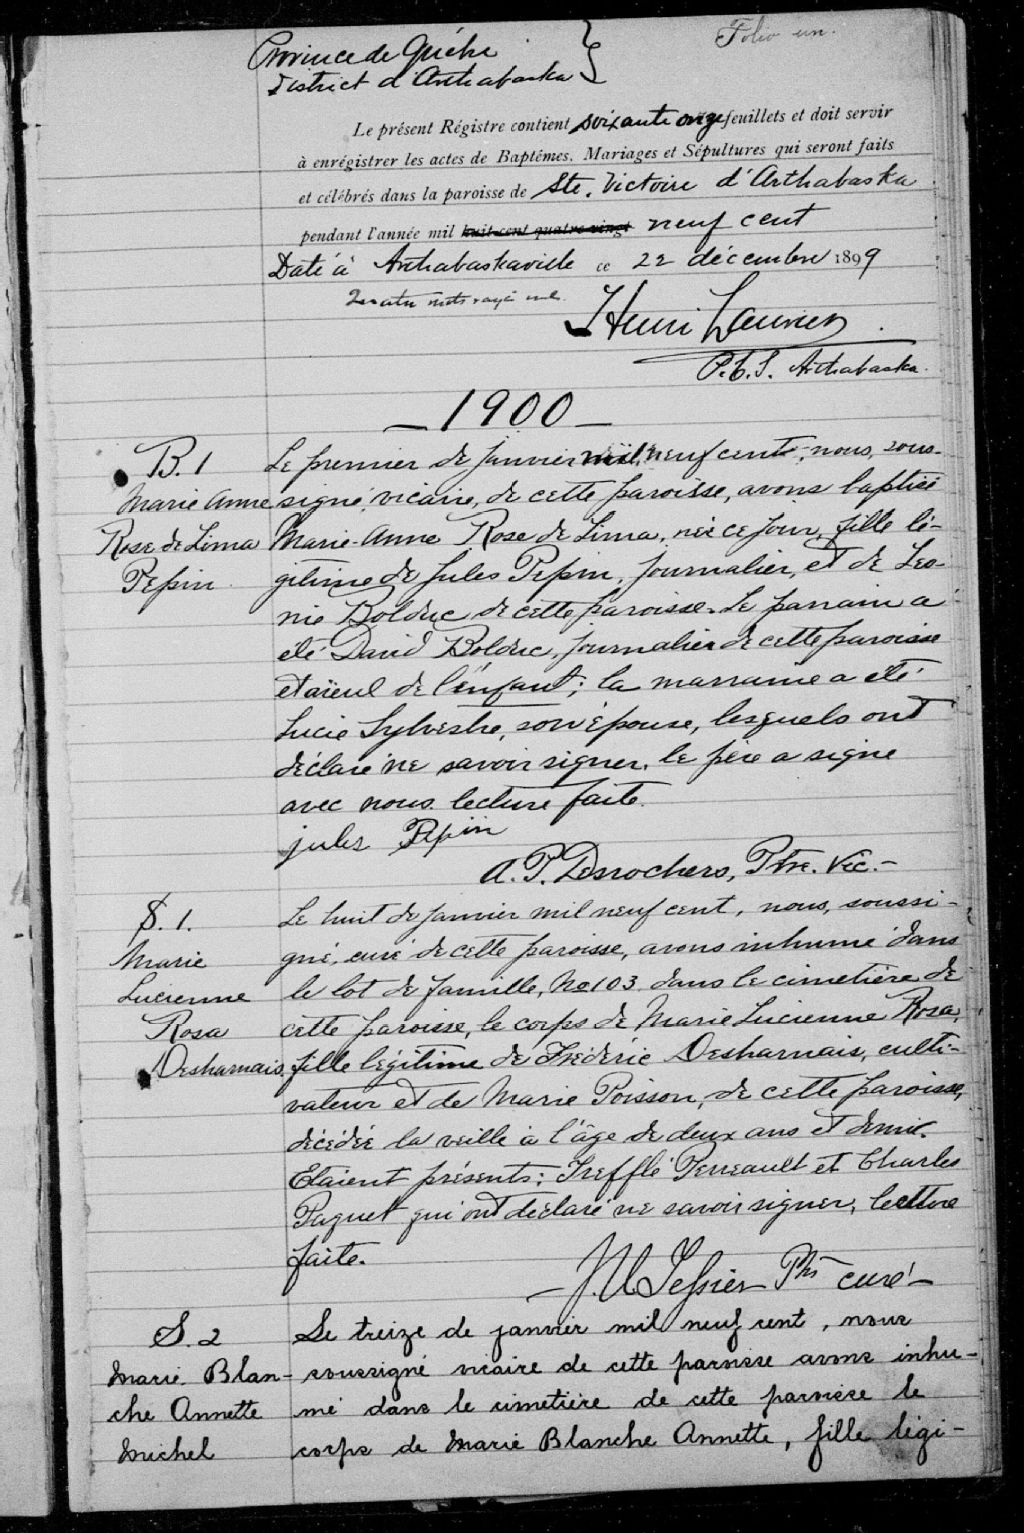 Folio un.
Province de Québec
District d'Arthabaska
Le présent Régistre contient soixante onze feuillets et doit servir
à enrégistrer les actes de Baptêmes, Mariages et Sépultures qui seront faits
et célébrés dans la paroisse de Ste. Victoire d'Arthabaska
pendant l'année mil huit cent quatre-vingt neuf cent
Daté à Arthabaskaville ce 22 décembre 1899
Quatre mots rayés nuls.
Henri Laurier
P.C.S. Arthabaska.
1900
B. 1
Marie Anne
Rose de Lima
Pepin
Le premier de janvier mil neuf cent, nous, sous-
signé, vicaire, de cette paroisse, avons baptisé
Marie-Anne Rose de Lima, née ce jour, fille lé-
gitime de Jules Pepin, journalier, et de Léo-
nie Bolduc de cette paroisse. Le parrain a
été David Bolduc, journalier de cette paroisse
et aïeul de l'enfant; la marraine a été
Lucie Sylvestre, son épouse, lesquels ont
déclaré ne savoir signer, le père a signé
avec nous. lecture faite.
jules Pepin
A. P. Desrochers, Ptre. Vic.-
S. 1.
Marie
Lucienne
Rosa
Desharnais
Le huit de janvier mil neuf cent, nous, soussi-
gné, curé de cette paroisse, avons inhumé dans
le lot de famille, No 103 dans le cimetière de
cette paroisse, le corps de Marie Lucienne Rosa,
fille légitime de Frédéric Desharnais, culti-
vateur et de Marie Poisson, de cette paroisse,
décédée la veille à l'âge de deux ans et demi.
Etaient présents: Trefflé Perreault et Charles
Paquet qui ont déclaré ne savoir signer, lecture
faite.
Ptre curé
S. 2
Marie Blan-
che Annette
Michel
Le treize de janvier mil neuf cent, nous
soussigné vicaire de cette paroisse avons inhu-
mé dans le cimetière de cette paroisse le
corps de Marie Blanche Annette, fille légi-